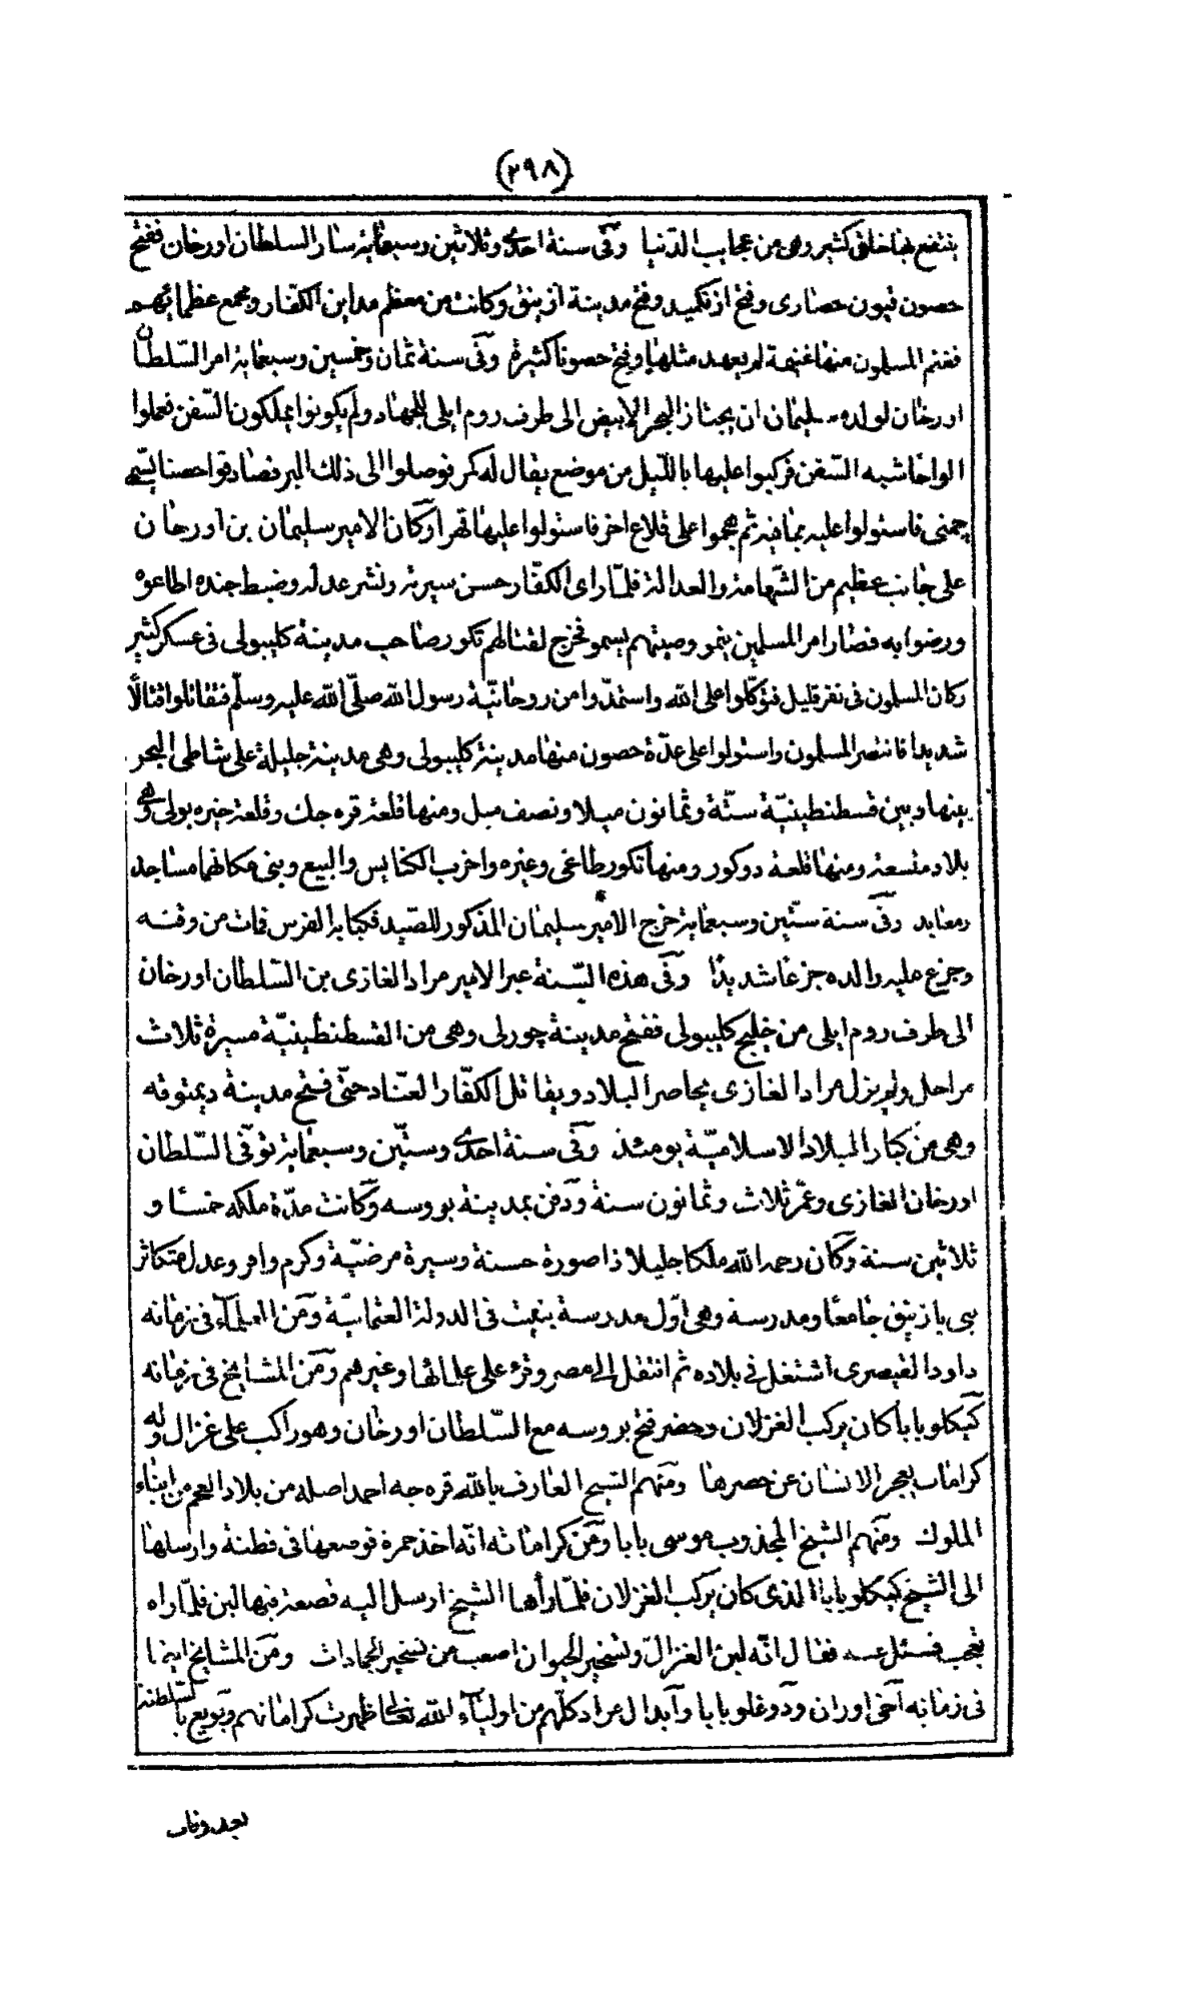 (٢٩٨)
ينتفع بها خلق كثير وهى من عجايب الدّنيا وفى سنة احدى وثلاثين وسبعمأية سار السلطان اورخان ففتح
حصون قيون حصارى وفتح ازنكميد وفتح مدينة ازنيق وكانت من معظم مداين الكفّار ومجمع عظمائهم
فغنم المسلمون منها غنيمة لم يعهد مثلها وفتح حصونا كثيرة وفى سنة ثمان وخمسين وسبعماية امر السّلطان
اورخان لولده سليمان ان يجتاز البحر الابيض الى طرف روم ايلى للجهاد ولم يكونوا يملكون السّفن فعملوا
الواحا شبه السّفن فركبوا عليها باللّيل من موضع يقال له كمر فوصلوا الى ذلك البر فصادفوا حصنا يسّمى
چمنى فاستولوا عليه بمافيه ثم هجموا على قلاع اخر فاستولوا عليها قهرا وكان الامير سليمان بن اورخان
على جانب عظيم من الشّهامة والعدالة فلمّا راى الكفّار حسن سيرته ونشر عدله وضبط جنده اطاعوه
ورضوا به فصار امر المسلمين ينمو وصيتهم يسمو فخرج لقتالهم تكور صاحب مدينة كليبولى فى عسكر كثير
وكان المسلمون فى نفر قليل فتوكّلوا على الله واستمدّوا من روحانيّة رسول الله صلّى الله عليه وسلّم فتقاتلوا قتالًا
شديدا فانتصر المسلمون واستولوا على عدّة حصون منها مدينة كليبولى وهى مدينة جليلة على شاطى البحر
بينها وبين قسطنطينيّة ستّة وثمانون ميلا ونصف ميل ومنها قلعة قره جك وقلعة خيره بولى وهى
بلاد متسعة ومنها قلعة دوكور ومنها تكور طاغى وغيره واخرب الكنايس والبيع وبنى مكانها مساجد
ومعابد وفى سنة ستّين وسبعماية خرج الامير سليمان المذكور للصّيد فكبا به الفرس فمات من وقته
وجزع عليه والده جزعا شديدًا وفى هذه السّنة عبر الامير مراد الغازى بن السّلطان اورخان
الى طرف روم ايلى من خليج كليبولى ففتح مدينة چورلى وهى من القسطنطينيّة مسيرة ثلاث
مراحل ولم يزل مراد الغازى يحاصر البلاد ويقاتل الكفّار العنّاد حتّى فتح مدينة ديمتوقه
وهى من كبار البلاد الاسلاميّة يومئذ وفى سنة احدى وستّين وسبعماية توفّى السّلطان
اورخان الغازى وعمّر ثلاث وثمانون سنة ودفن بمدينة بروسه وكانت مدّة ملكه خمسا و
ثلاثين سنة وكان رحمه الله ملكا جليلا ذا صورة حسنة وسيرة مرضيّة وكرم وافر وعدل متكاثر
بنى بازنيق جامعًا ومدرسة وهى اوّل مدرسة بنيت فى الدولة العثمانيّة ومن العلماء فى زمانه
داود القيصرى اشتغل فى بلاده ثم انتقل الى مصر وقرء على علمائها وغيرهم ومن المشايخ فى زمانه
كيكلو بابا كان يركب الغزلان وحضر فتح بروسه مع السّلطان اورخان وهو راكب على غزال وله
كرامات يعجر الانسان عن حصرها ومنهم الشيخ العارف بالله قره جه احمد اصله من بلاد العجم من ابناء
الملوك ومنهم الشيخ المجذوب موسى بابا ومن كراماته انّه اخذ جمرة فوضعها فى قطنة وارسلها
الى الشيخ كيكلو بابا الذى كان يركب الغزلان فلمّا رأها الشيخ ارسل اليه قصعة فيها لبن فلمّا راه
تعجب فسئل عنه فقال انّه لبن الغزال وتسخير الحيوان اصعب من تسخير الجمادات ومن المشايخ ايضا
فى زمانه آخى اوران ودوغلو بابا وآبدال مراد كلّهم من اولياء الله تعالى ظهرت كراماتهم وبويع بالسّلطنة
بعد وفات